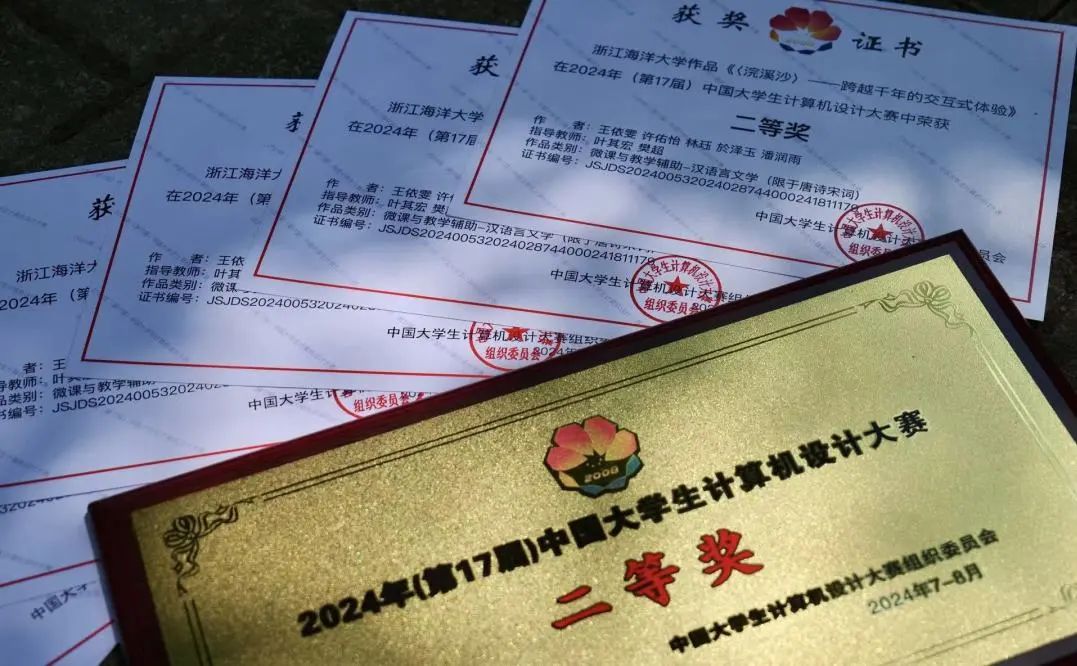 获奖 证书
浙江海洋大学作品《〈浣溪沙〉——跨越千年的交互式体验》
在2024年（第17届）中国大学生计算机设计大赛中荣获
二等奖
作 者：王依雯 许佑怡 林珏 於泽玉 潘润雨
指导教师：叶其宏 樊超
作品类别：微课与教学辅助-汉语言文学（限于唐诗宋词）
证书编号：JSJDS20240053202402874400024181117
中国大学生计算机设计大赛组织委员会
获
浙江海洋大学
在2024年（第17届
作 者：王依雯 许
指导教师：叶其宏 樊
作品类别：微课与教学辅助-汉语言文学（限于唐诗宋
证书编号：JSJDS20240053202402874400024181117
中国大学生计算机设计大赛组
组织委员会
获
浙江海洋大
在2024年（第
作 者：王依
指导教师：叶其
作品类别：微课
证书编号：JSJDS202400532024028
中国大学生计算机设计大赛组织委
组织委员会
2024年
获
浙江海洋大
2024年（第
者：王
导教师：叶
品类别：微课与教学辅助
书编号：JSJDS202400532024028
中国大学生计算机
组织委员会
中国大
2008
2024年(第17届)中国大学生计算机设计大赛
二等奖
中国大学生计算机设计大赛组织委员会
2024年7-8月